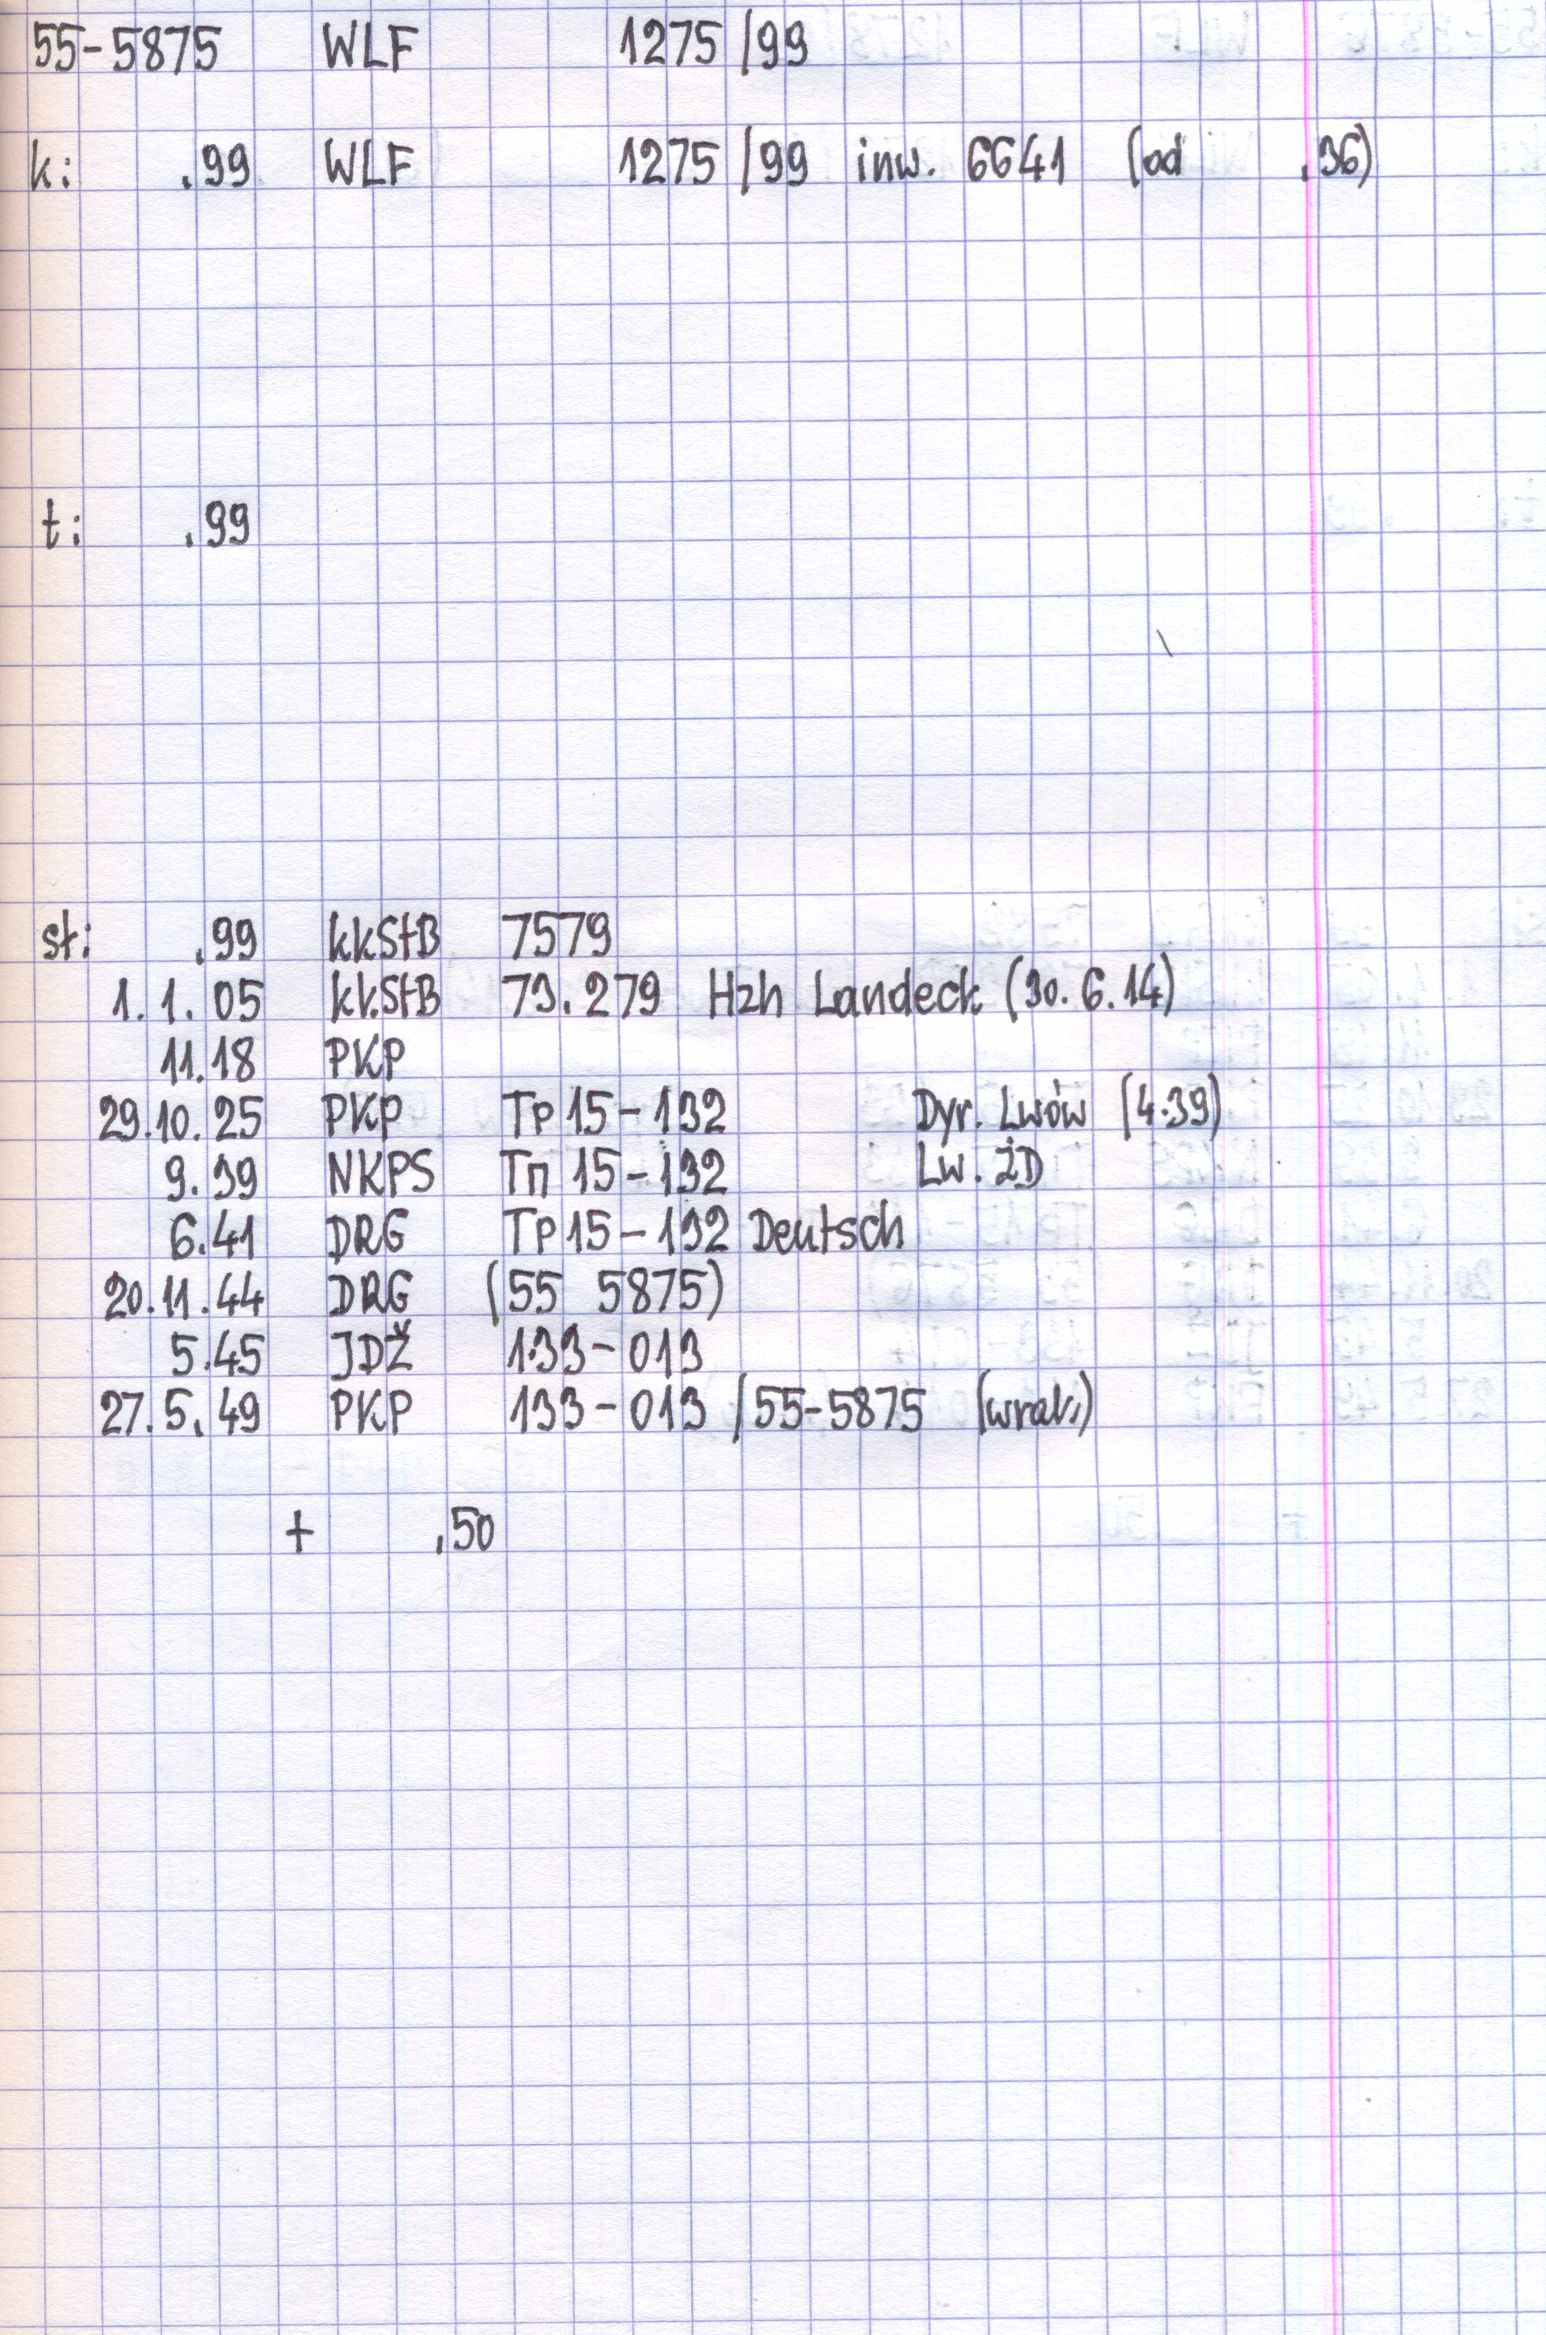 55-5875 WLF 1275/99
k: .99 WLF 1275/99 inw. 6641 (od .36)
t: .99
st: .99 kkStB 7579
1.1.05 kkStB 73.279 Hzh Landeck (30.6.14)
11.18 PKP
29.10.25 PKP Tp 15-132 Dyr. Lwów (4.39)
9.39 NKPS Тп 15-132 Lw. ŻD
6.41 DRG Tp 15-132 Deutsch
20.11.44 DRG (55 5875)
5.45 JDŽ 133-013
27.5.49 PKP 133-013/55-5875 (wrak)
+ .50